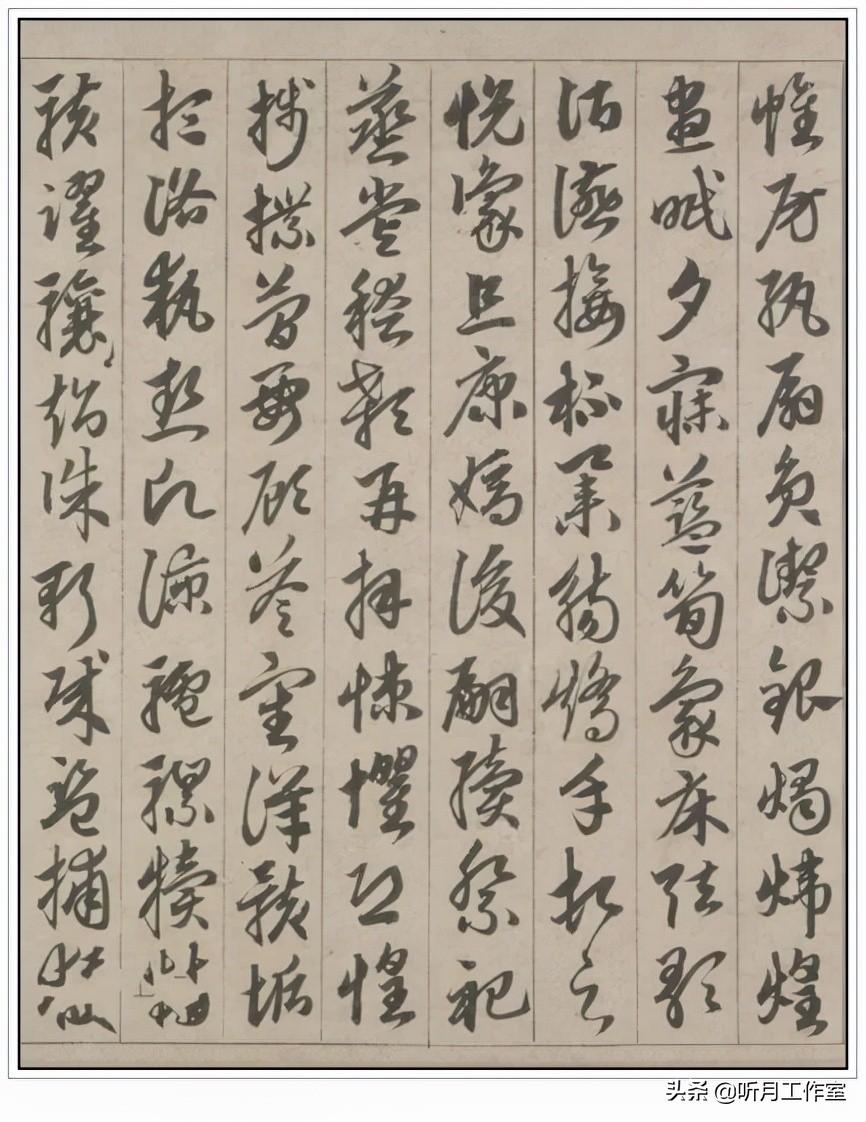 帷房紈扇員潔銀燭煒煌
晝眠夕寐藍筍象床弦歌
酒讌接杯舉觴矯手頓足
悅豫且康嫡後嗣續祭祀
蒸嘗稽顙再拜悚懼恐惶
牋牒簡要顧答審詳骸垢
想浴執熱願涼驢騾犢特
駭躍驤超誅斬賊盜捕獲
头条 @听月工作室